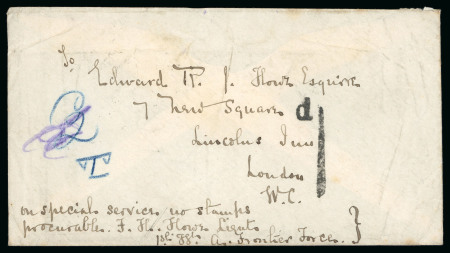 To
Edward W. J. Howe Esquire
7 New Square
d
Lincolns Inn
London
W.C.
T
on special service no stamps
procurable. F. H. Howe Lieut
A. Frontier Force.